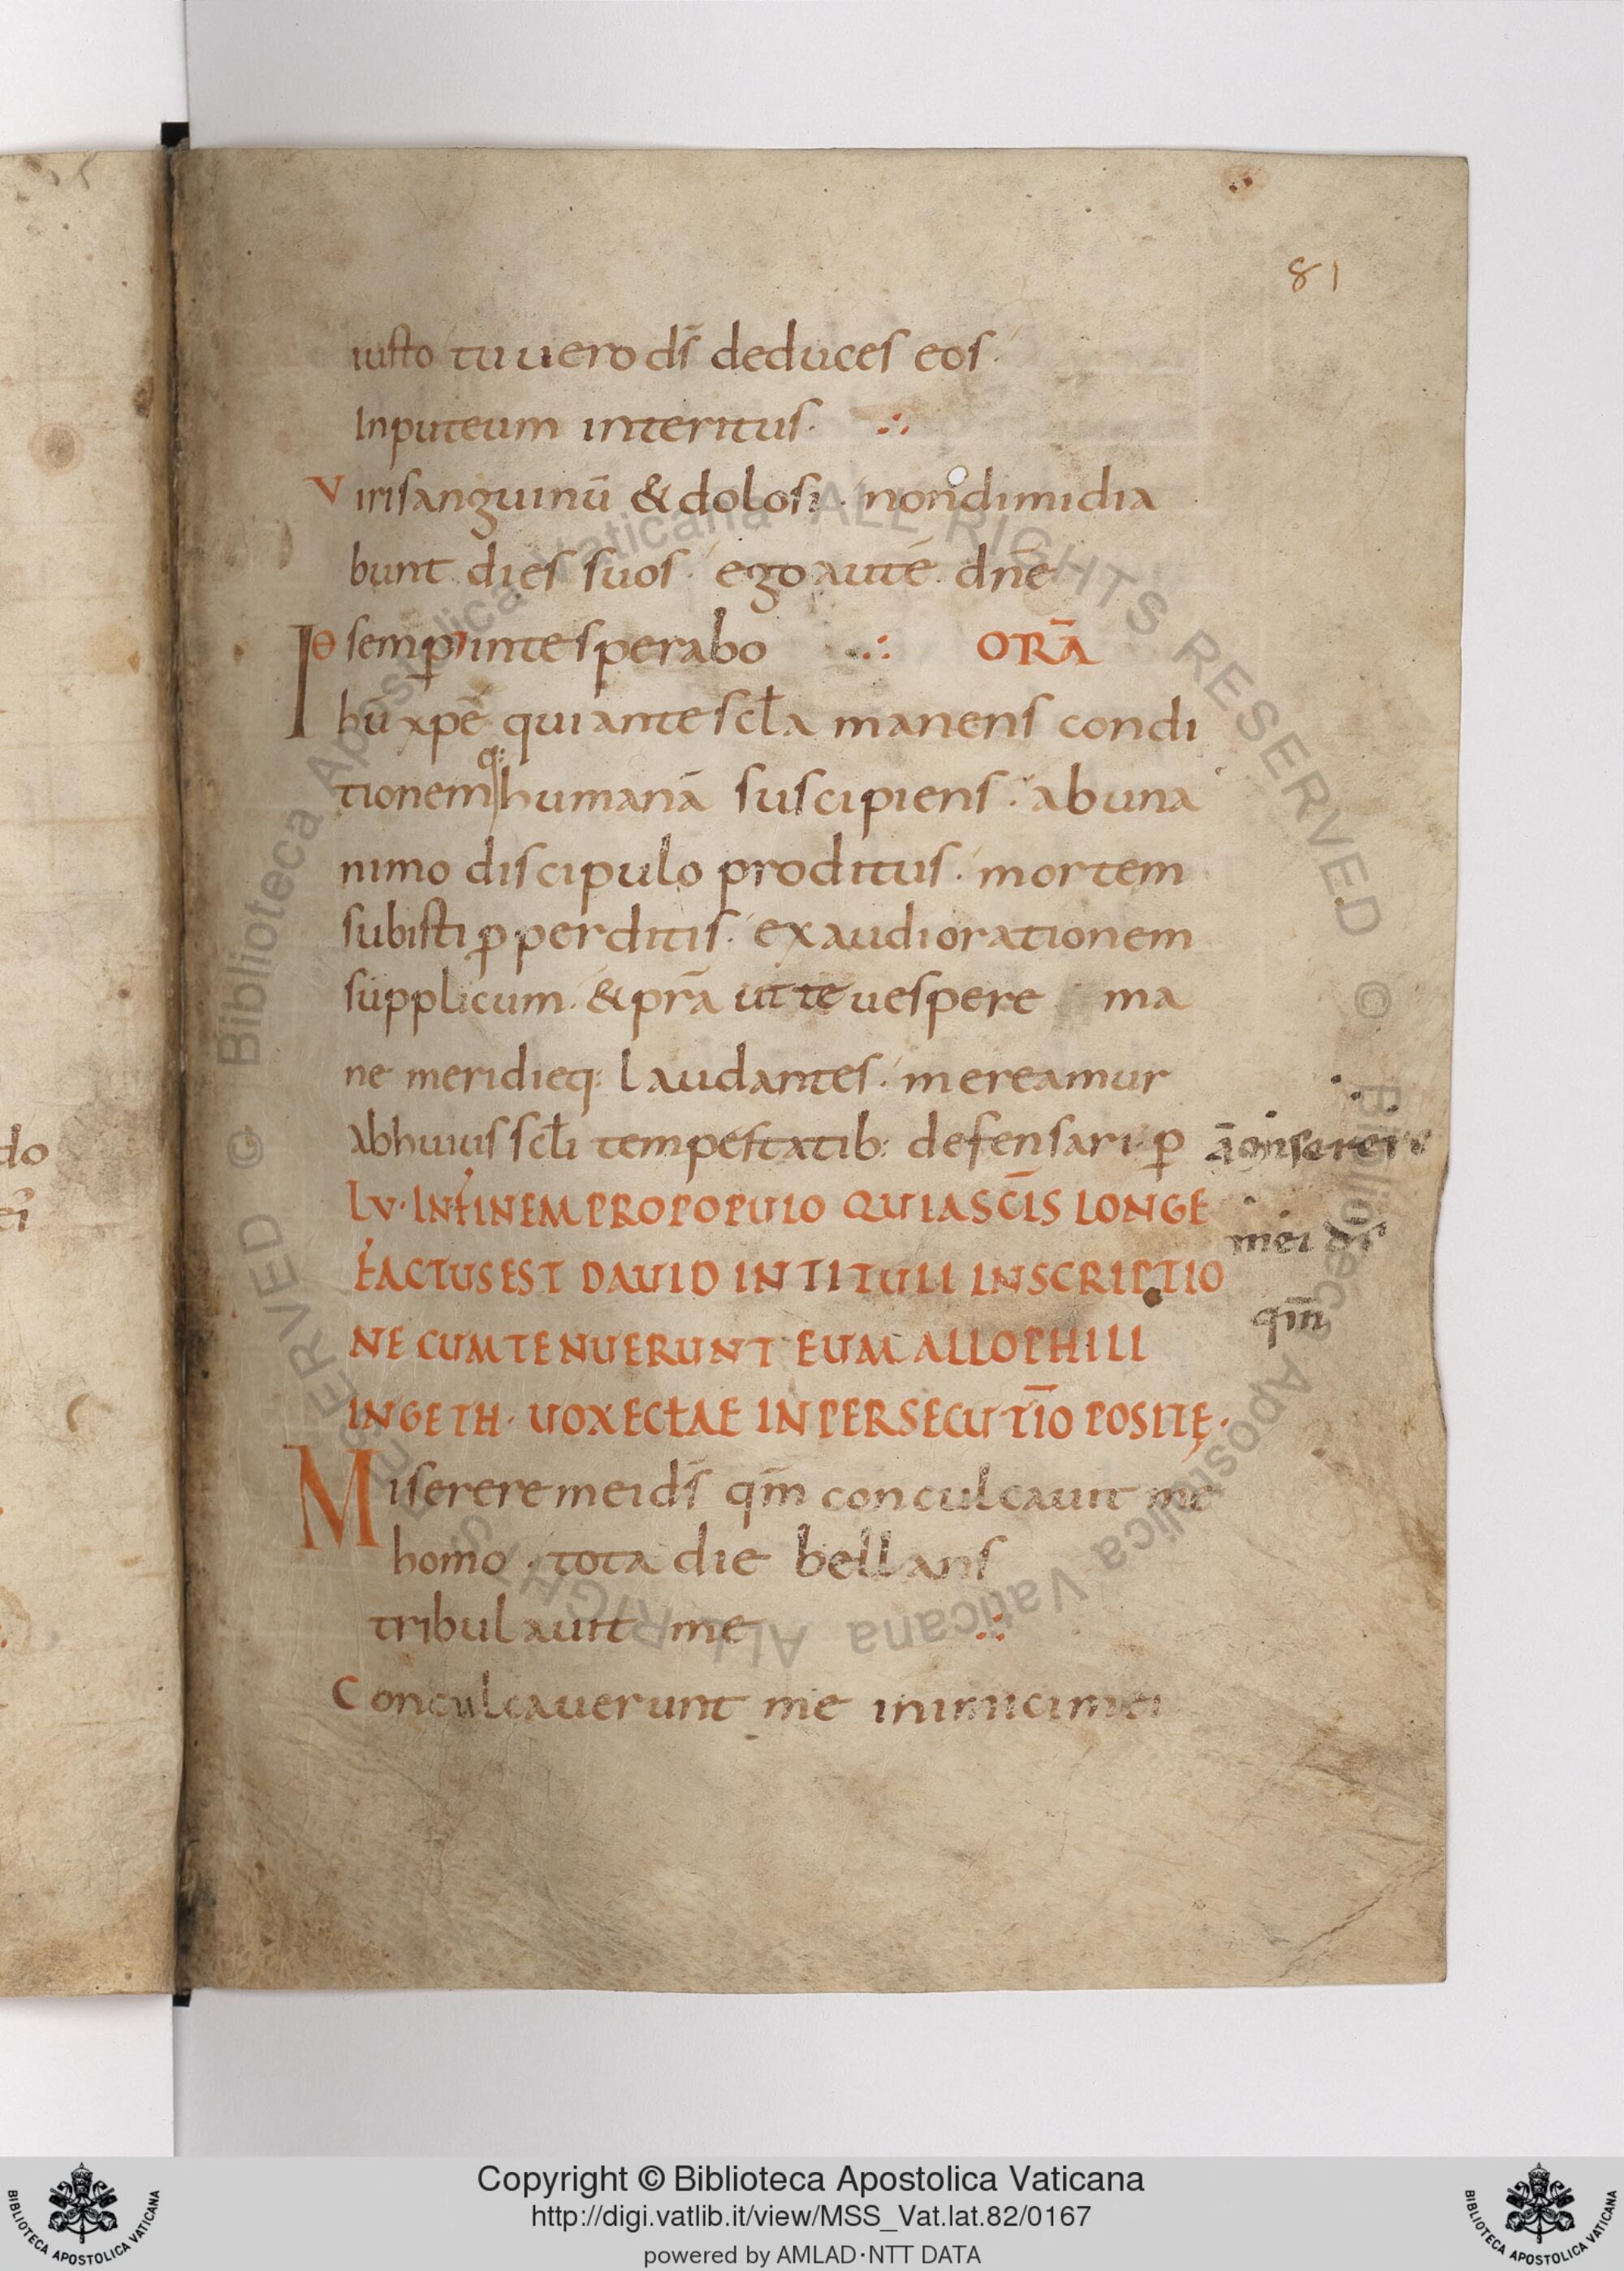 81
iusto tu uero ds̄ deduces eos.
Inputeum interitus.
Virisanguinū & dolosi. non dimidia
bunt dies suos. ego autē dn̄e
semp̄ inte sperabo ORĀ
Ihū xpē qui ante scl̄a manens condi
tionem humanā suscipiens. ab una
nimo discipulo proditus. mortem
subisti p perditis. exaudi orationem
supplicum. & prā ut te uespere ma
ne meridieq: laudantes. mereamur
abhuius scl̄i tempestatib: defensari. p
LV. IN FINEM PROPOPULO QUIASC̄IS LONGE
FACTUS EST DAUID IN TITULI INSCRIPTIO
NE CUM TENUERUNT EUM ALLOPHILI
INGETH. UOX ECLAE IN PERSECUTĪO POSITĘ.
Miserere mei ds̄ qm̄ conculcauit me
homo. tota die bellans
tribulauit me
Conculcauerunt me inimici mei
mei ds̄
qm̄
do
Copyright © Biblioteca Apostolica Vaticana
http://digi.vatlib.it/view/MSS_Vat.lat.82/0167
powered by AMLAD·NTT DATA
BIBLIOTECA APOSTOLICA VATICANA
BIBLIOTECA APOSTOLICA VATICANA
© Biblioteca Apostolica Vaticana ALL RIGHTS RESERVED © Biblioteca Apostolica Vaticana ALL RIGHTS RESERVED